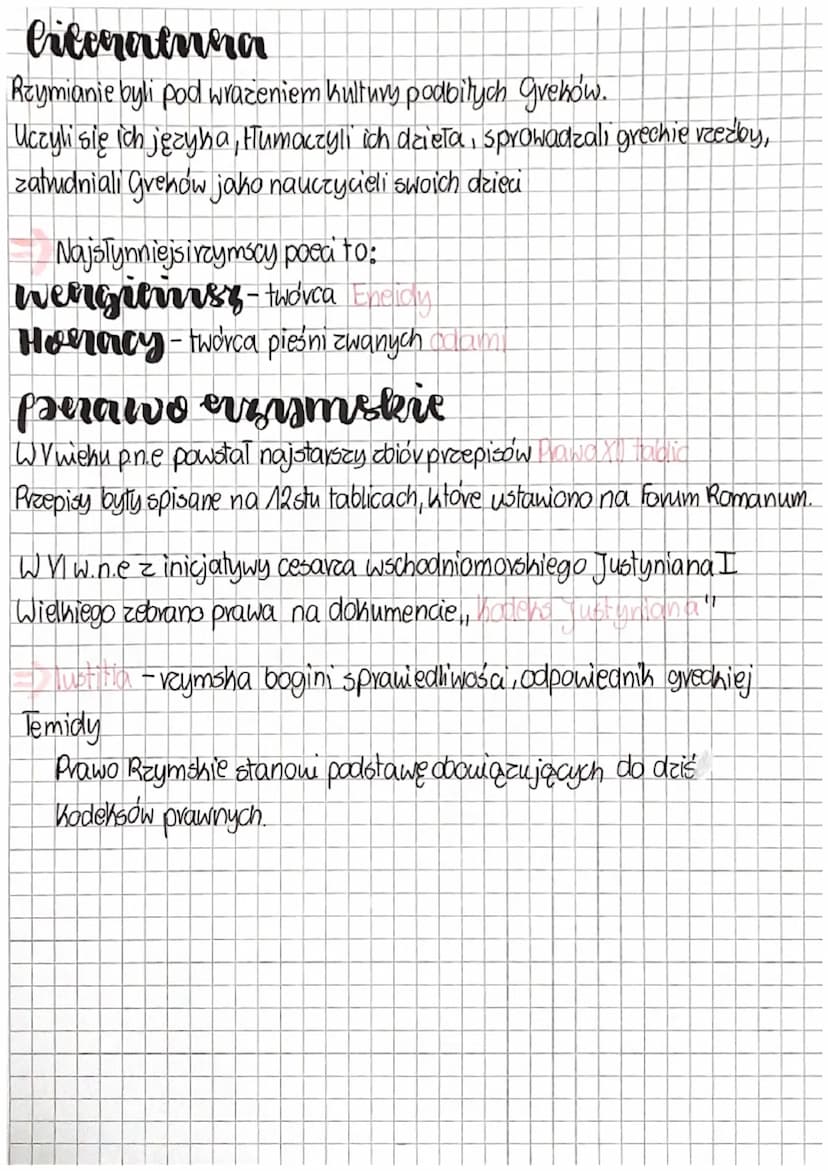 Literatura
Rzymianie byli pod wrażeniem kultury podbitych Greków.
Uczyli się ich języka, tłumaczyli ich dzieła, sprowadzali greckie rzeźby,
zatrudniali Greków jako nauczycieli swoich dzieci
⇒ Najsłynniejsi rzymscy poeci to:
Wergiliusz - twórca Eneidy
Horacy - twórca pieśni zwanych odami
Prawo rzymskie
W V wieku p.n.e powstał najstarszy zbiór przepisów Prawo XII tablic
Przepisy były spisane na 12stu tablicach, które ustawiono na Forum Romanum.
W VI w.n.e z inicjatywy cesarza wschodniomorskiego Justyniana I
Wielkiego zebrano prawa na dokumencie „Kodeks Justyniana"
⇒ Iustitia - rzymska bogini sprawiedliwości, odpowiednik greckiej
Temidy
Prawo Rzymskie stanowi podstawę obowiązujących do dziś
kodeksów prawnych.